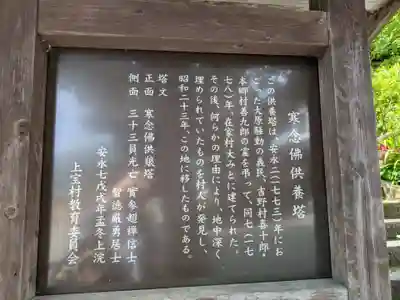 寒念佛供養塔
この供養塔は、安永二(一七七三)年にお
こった大原騒動の義民、吉野村喜十郎・
本郷村善九郎の霊を弔って、同七(一七
七八)年、在家村大みとに建てられた。
その後、何らかの理由により、地中深く
埋められていたものを村人が発見し、
昭和二十三年、この地に移したものである。
塔文
正面 寒念佛供養塔
側面 三十三員先亡 實参道禅信士
智徳厳勇居士
安永七戊戌年孟冬上浣
上宝村教育委員会